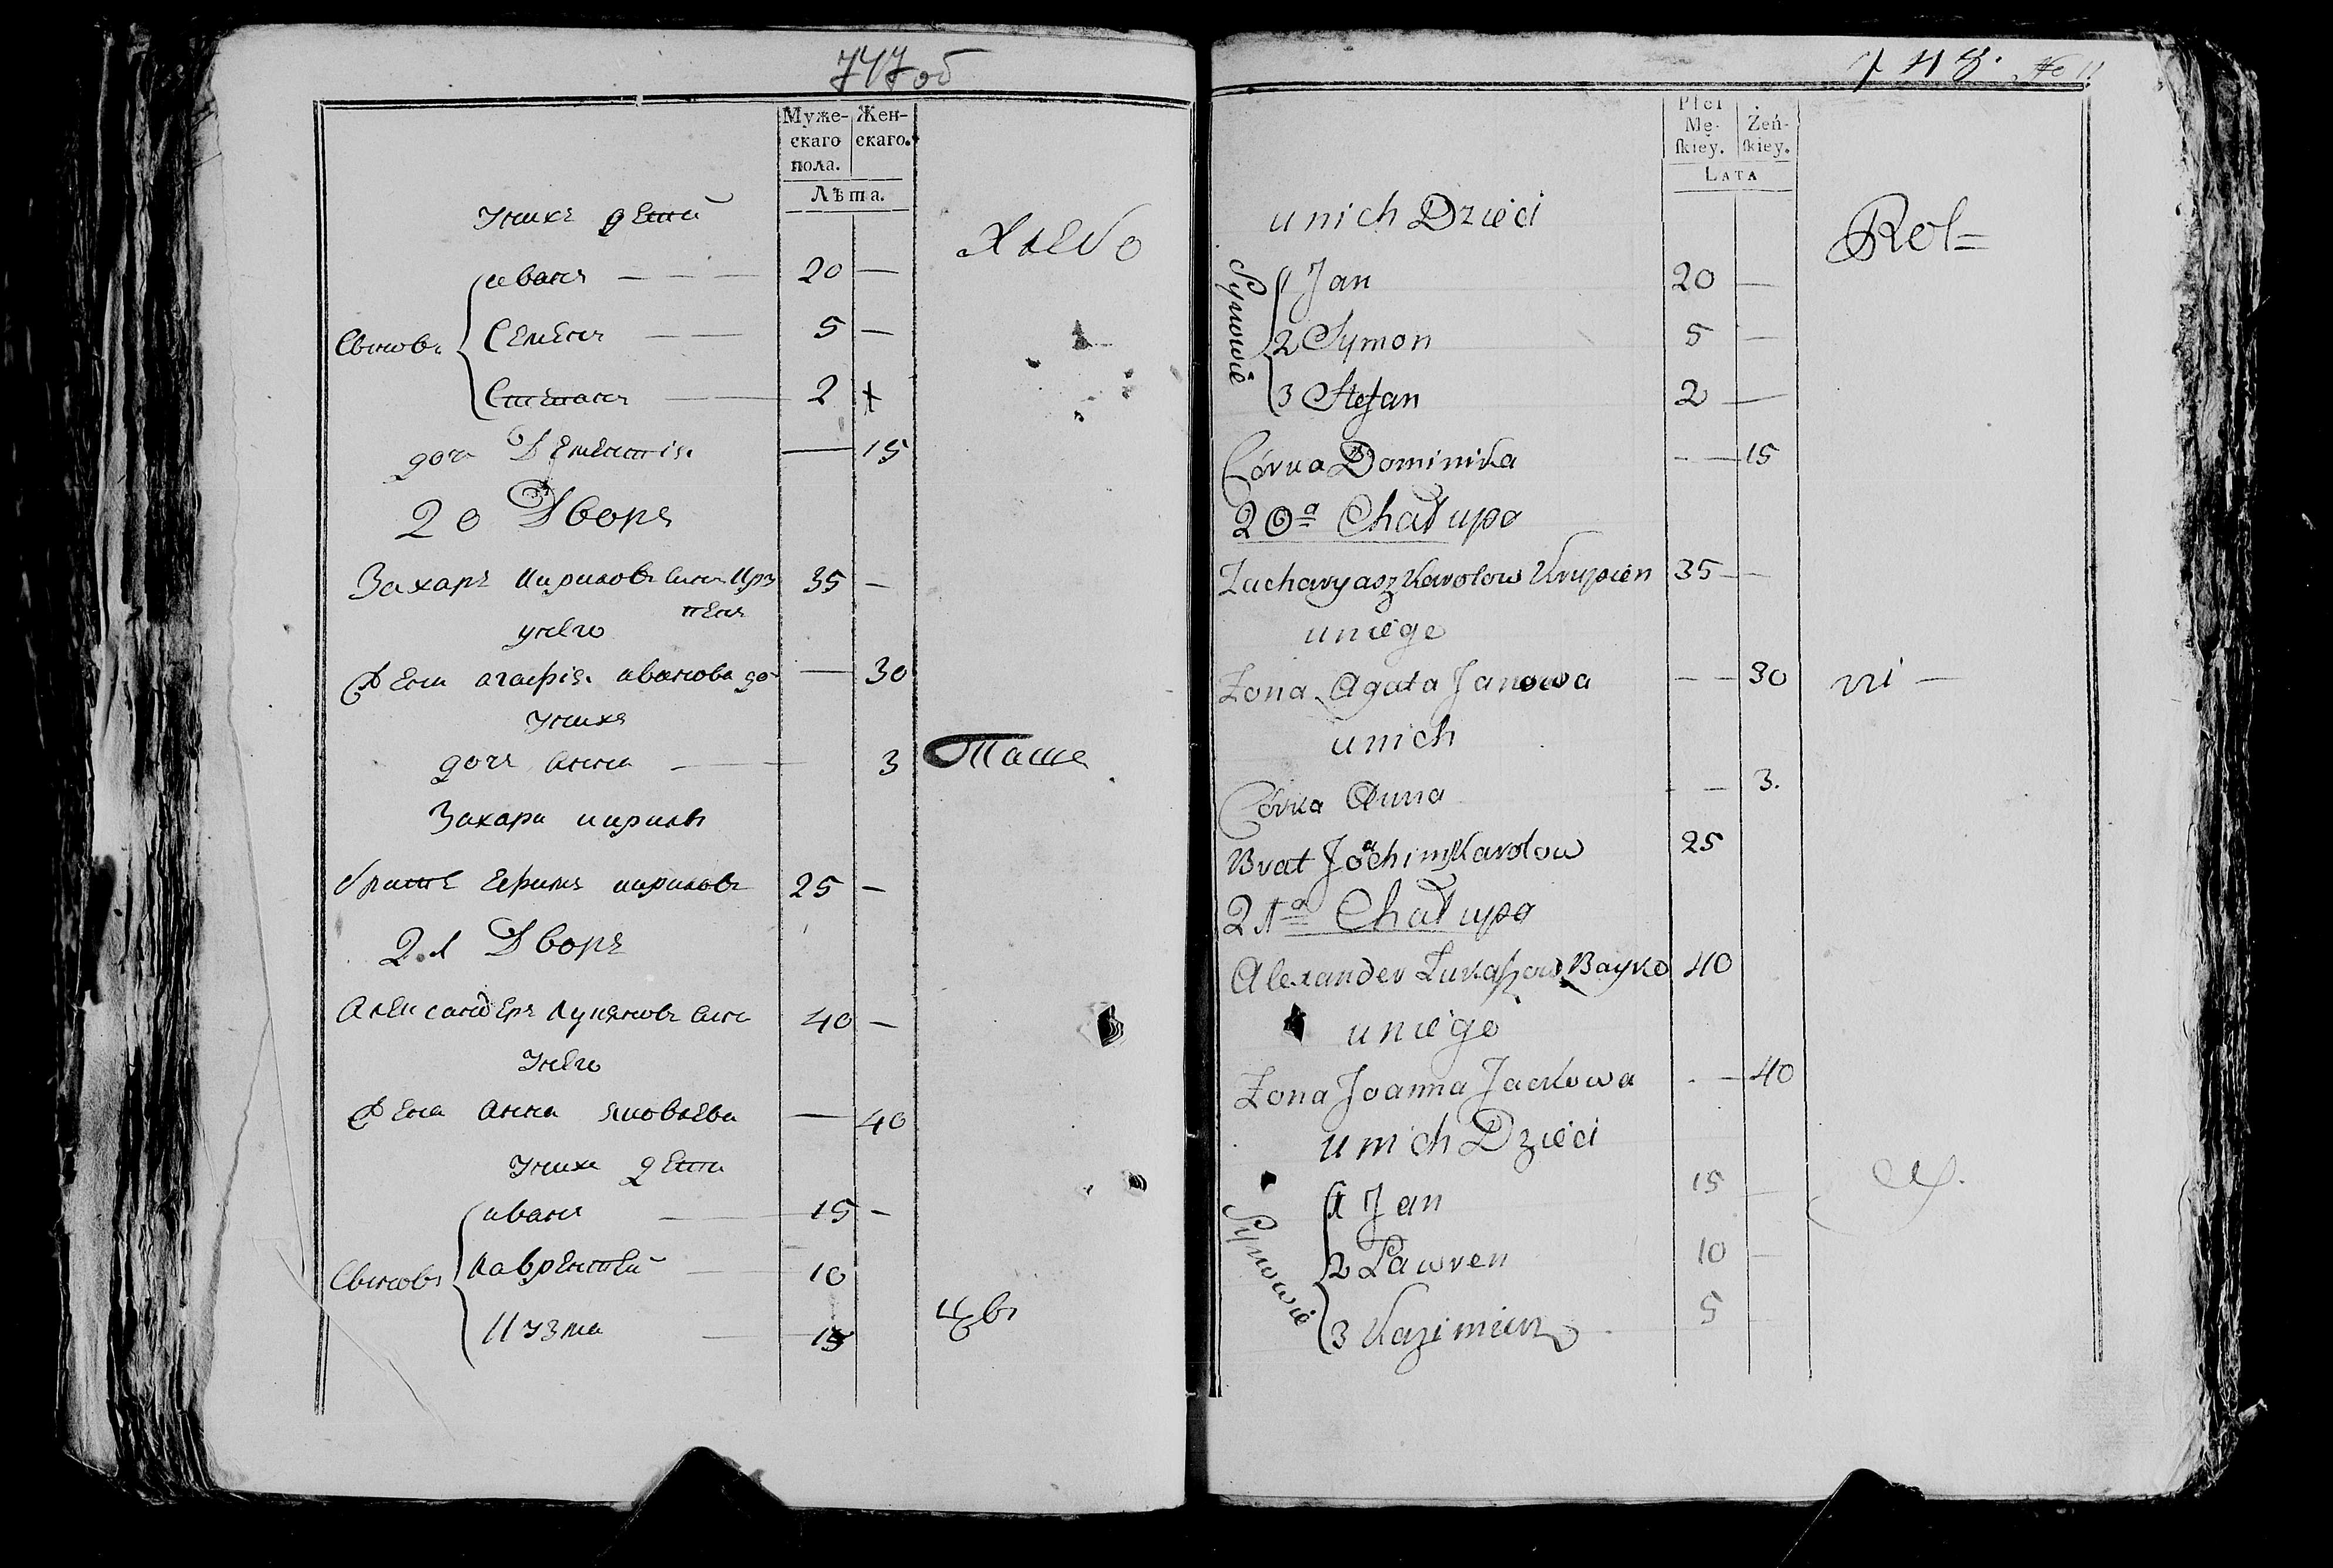 747об
Муже-
скаго
пола.
Жен-
скаго.
Лѣта.
Унихъ детей
Хлебо
иванъ 20 —
Сыновъ
Семенъ 5 —
Степанъ 2
доч Дементія — 15
20 Дворъ
Захаръ кириловъ синъ Кру 35 —
пеня
унего
Жена агафія иванова до — 30
Унихъ
дочъ анна 3
Таше
Захара кирила
братъ ефимъ кириловъ 25 —
21 Дворъ
Александеръ Лукяновъ синъ 40 —
Унего
Жена анна яковлева — 40
Унихъ дети
иванъ 15 —
Сыновъ
лаврентей 10
Кузма 15
цовъ
748. No 11
Płci
Mę-
ſkiey.
Żeń-
ſkiey.
LATA
u nich Dzieci
Rol=
Synowie
1 Jan 20 —
2 Symon 5 —
3 Stefan 2 —
Córka Dominika — 15
20a Chałupa
Zacharyasz Karolow Krupień 35 —
u niego
Żona Agata Janowa — 30
ni —
u nich
Córka Anna — 3.
Brat Joachim Karolow 25
21a Chałupa
Alexander Łukaszow Bayko 40
u niego
Żona Joanna Jackowa — 40
u nich Dzieci
Synowie
1 Jan 15 —
cy.
2 Ławren 10 —
3 Kazimierz 5 —